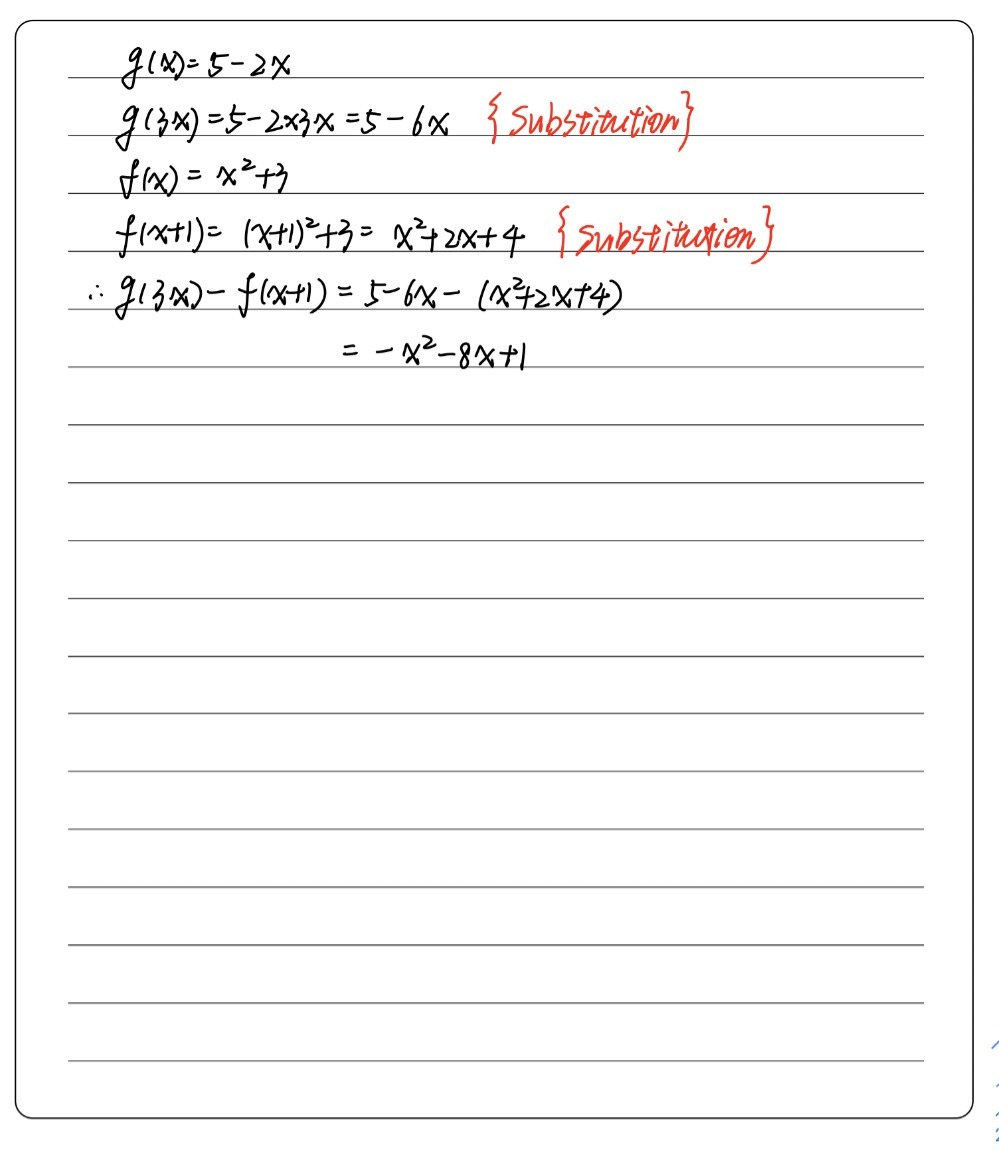 g(x)=5-2x
g(3x)=5-2×3x=5-6x {Substitution}
f(x)=x²+3
f(x+1)=(x+1)²+3=x²+2x+4 {Substitution}
∴ g(3x)-f(x+1)=5-6x-(x²+2x+4)
=-x²-8x+1